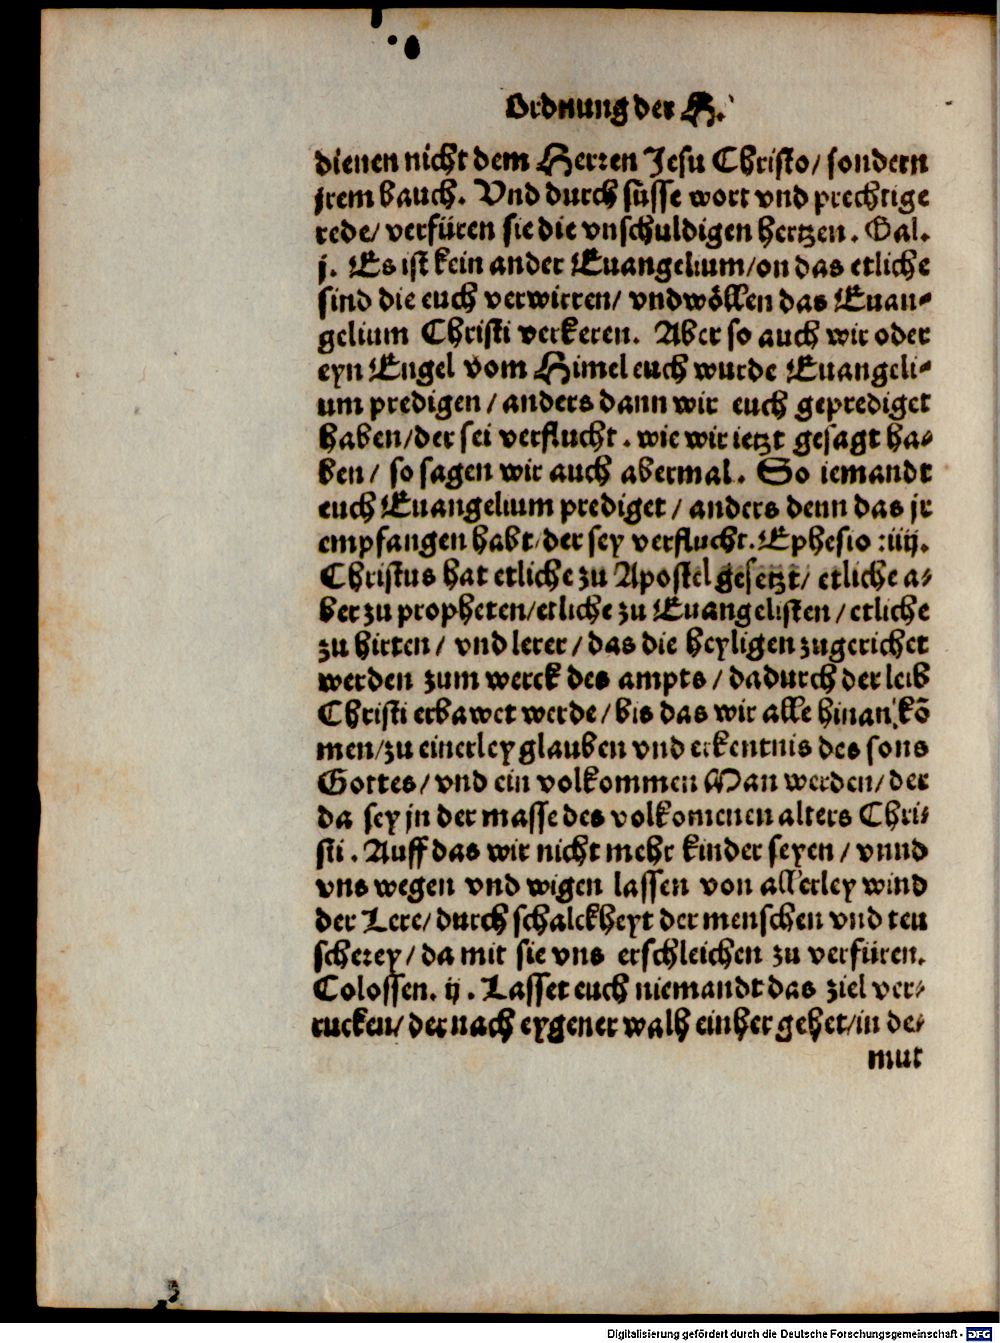 Ordnung der H.
dienen nicht dem Herren Jesu Christo/ sondern
jrem bauch. Vnd durch süsse wort vnd prechtige
rede/ verfüren sie die vnschuldigen hertzen. Gal.
j. Es ist kein ander Euangelium/on das etliche
sind die euch verwirren/ vndwöllen das Euan-
gelium Christi verkeren. Aber so auch wir oder
eyn Engel vom Himel euch wurde Euangeli-
um predigen / anders dann wir euch geprediget
haben/der sei verflucht. wie wir ietzt gesagt ha-
ben/ so sagen wir auch abermal. So iemandt
euch Euangelium prediget / anders denn das jr
empfangen habt/der sey verflucht. Ephesio :iiij.
Christus hat etliche zu Apostel gesetzt/ etliche a-
ber zu propheten/etliche zu Euangelisten / etliche
zu hirten / vnd lerer / das die heyligen zugerichet
werden zum werck des ampts / dadurch der leib
Christi erbawet werde / bis das wir alle hinan kõ
men/zu einerley glauben vnd erkentnis des sons
Gottes/ vnd ein volkommen Man werden/ der
da sey jn der masse des volkomenen alters Chri-
sti. Auff das wir nicht mehr kinder seyen / vnnd
vns wegen vnd wigen lassen von allerley wind
der Lere/ durch schalckheyt der menschen vnd teu
scherey/ da mit sie vns erschleichen zu verfüren.
Colossen. ij. Lasset euch niemandt das ziel ver-
rucken/ der nach eygener walh einher gehet/in de-
mut
Digitalisierung gefördert durch die Deutsche Forschungsgemeinschaft - DFG